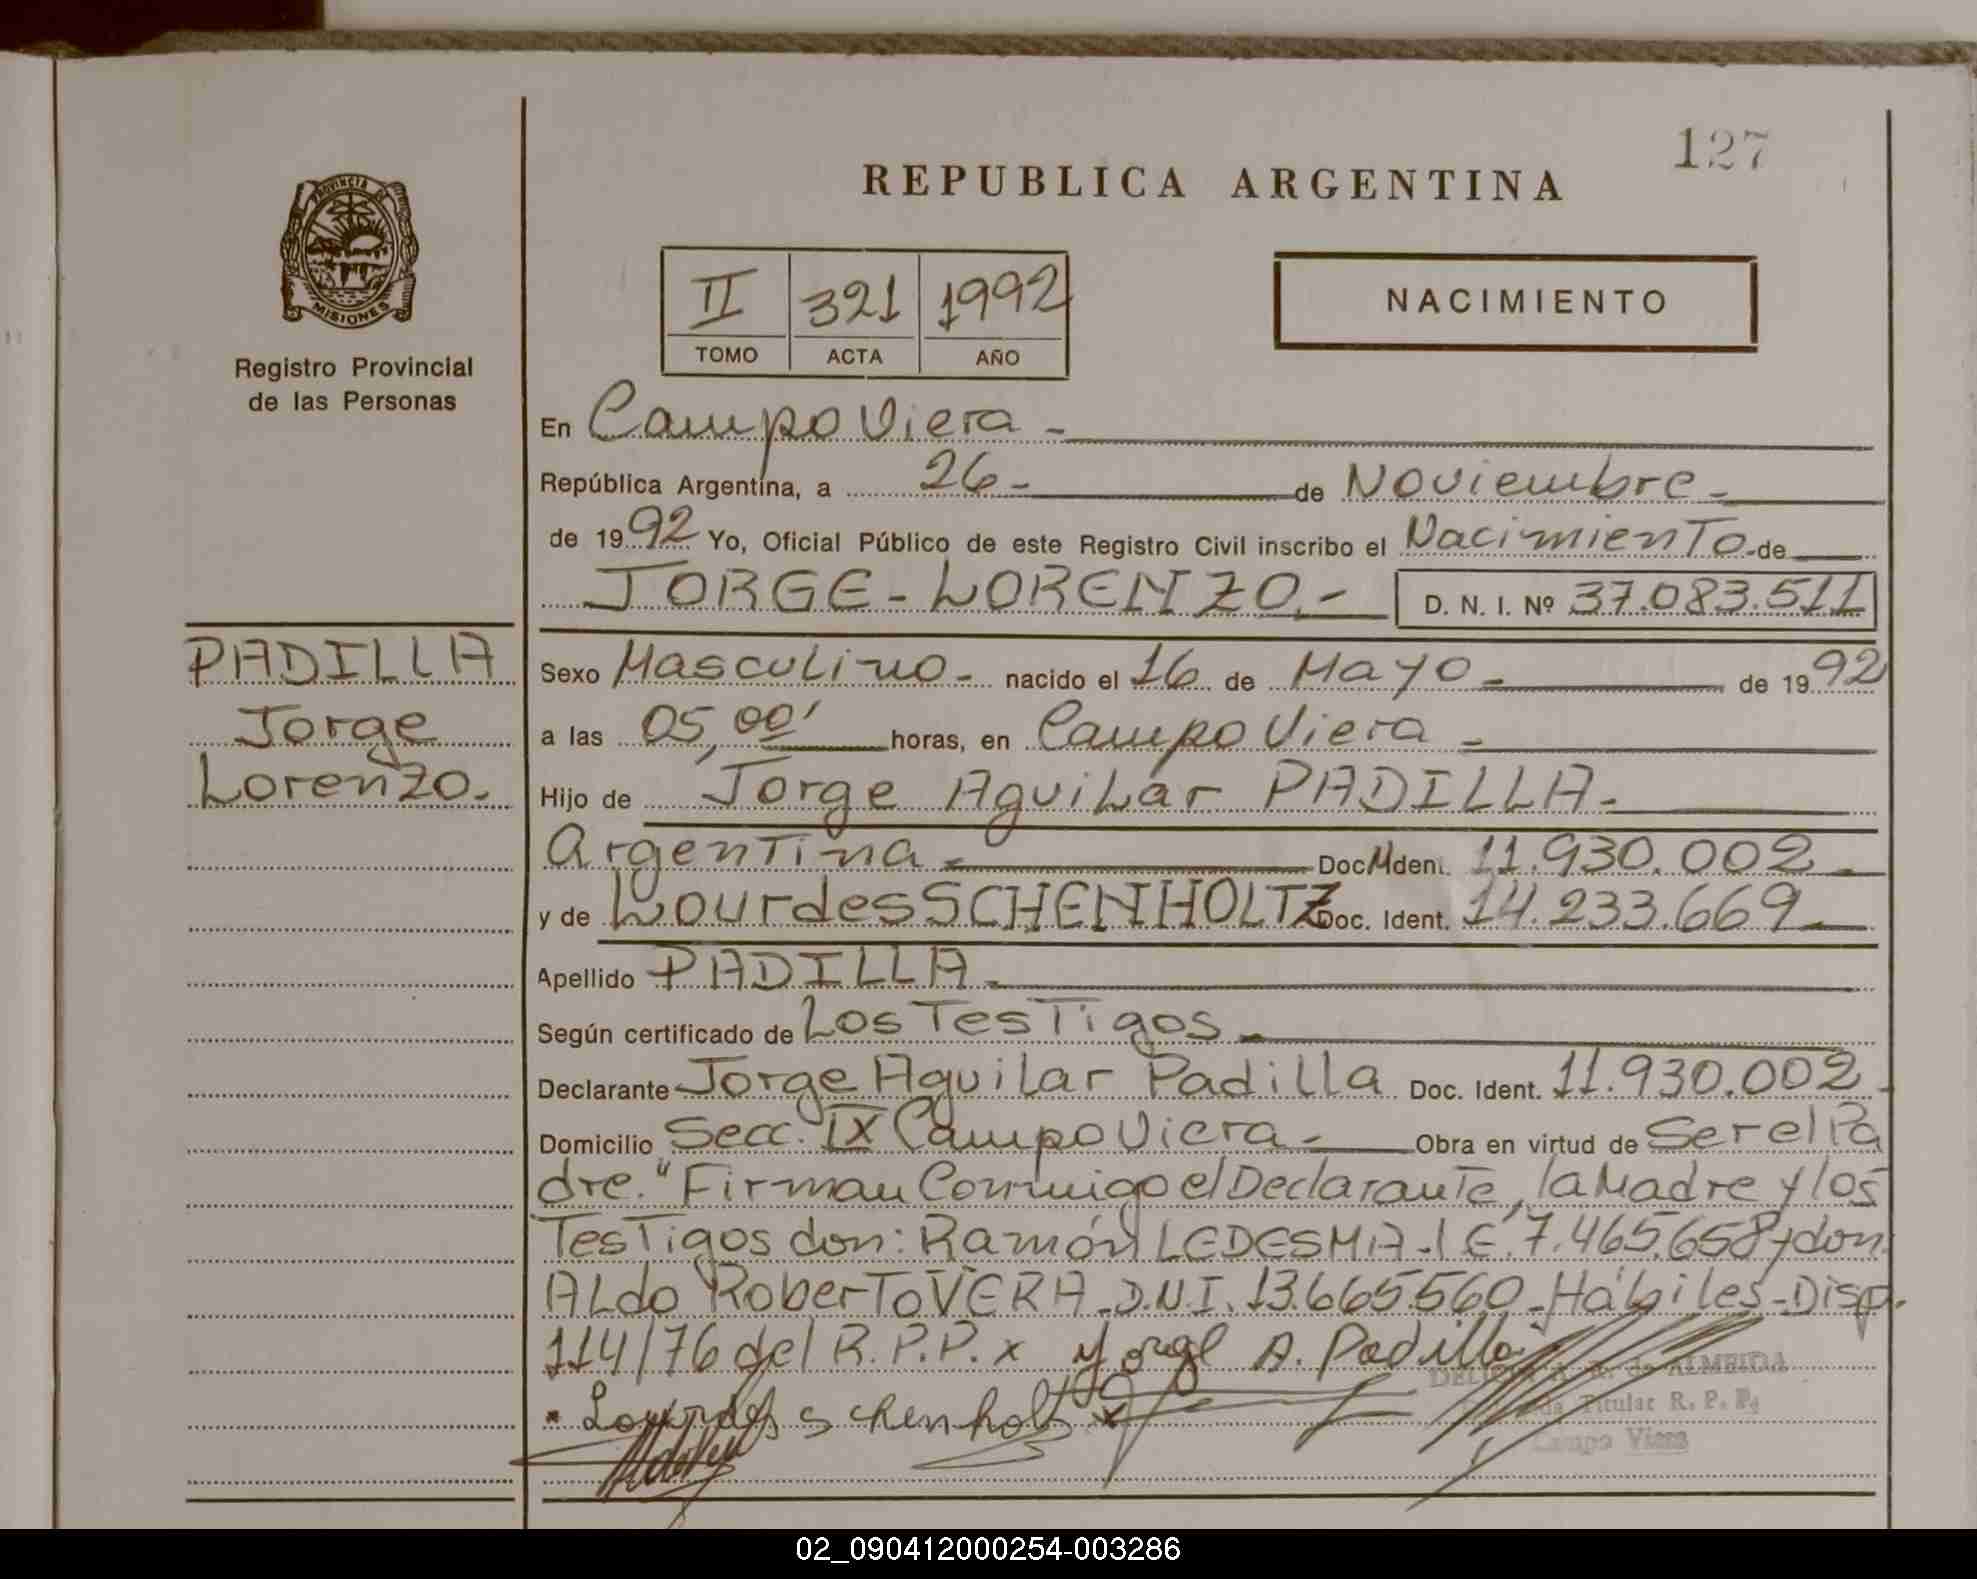 127
REPUBLICA ARGENTINA
PROVINCIA DE
MISIONES
Registro Provincial
de las Personas
II 321 1992
TOMO ACTA AÑO
NACIMIENTO
En Campo Viera -
República Argentina, a 26 - de Noviembre -
de 1992 Yo, Oficial Público de este Registro Civil inscribo el Nacimiento - de
JORGE - LORENZO. - D. N. I. Nº 37.083.511
PADILLA
Jorge
Lorenzo.
Sexo Masculino - nacido el 16 de Mayo - de 1992
a las 05,00' horas, en Campo Viera -
Hijo de Jorge Aguilar PADILLA -
Argentina - Doc. Ident. 11.930.002 -
y de Lourdes SCHENHOLTZ Doc. Ident. 14.233.669 -
Apellido PADILLA -
Según certificado de Los Testigos -
Declarante Jorge Aguilar Padilla Doc. Ident. 11.930.002 -
Domicilio Secc. IX Campo Viera - Obra en virtud de Ser el Pa
dre." Firman Conmigo el Declarante, la Madre y los
Testigos don: Ramón LEDESMA - L E. 7.465.658 y don
ALdo Roberto VERA - D.N.I. 13.665.560 - Hábiles - Disp.
114/76 del R. P. P. x Jorge A. Padilla
x Lourdes Schenholtz x
de ALMEIDA
Titular R. P. P.
Campo Viera
02_090412000254-003286